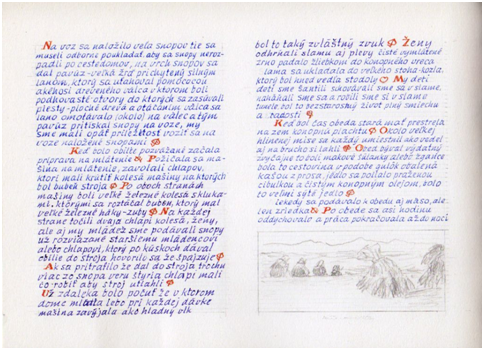 Na voz sa naložilo veľa snopov tie sa
museli odborne poukladať aby sa snopy neroz-
padli po cestedomov, na vrch snopov sa
dal pavúz-veľká žrď prichytený silným
lanom, ktorý sa uťahoval pomocovou
akéhosi dreveného válca v ktorom boli
podkovasté otvory do ktorých sa zasúvali
piesty-ploché drevá a otáčaním válca sa
lano omotávalo (okolo) na válec a tým
pavúz pritískal snopy na voze, my
sme mali opäť príležitosť voziť sa na
voze naložené snopami
Keď bolo obilie pozvážané začala
príprava na mlátenie Požičala sa ma-
šina na mlátenie, zavolali chlapov,
ktorí mali krátiť kolesá mašiny na ktorých
bol buben stroja Po oboch stranách
mašiny boli veľké železné kolesá s kluka-
mi, ktorými sa roztáčal buben, ktorý mal
veľké železné háky-zuby Na každej
strane točili dvaja chlapi kolesá, ženy,
ale aj my mládež sme podávali snopy
už rozviazané staršiemu mládencovi
alebo chlapovi, ktorý po kúskoch dával
obilie do stroja hovorilo sa že špajzuje
Ak sa pritrafilo že dal do stroja trochu
viac zo snopa veru štyria chlapi mali
čo robiť aby stroj utiahli
Už zdaleka bolo počuť že v ktorom
dome mlátia lebo pri každej dávke
mašina zavýjala ako hladný vlk
bol to taký zvláštny zvuk Ženy
odhŕňali slamu aj plevy čisté vymlátené
zrno padalo žliebkou do konopného vreca
lama sa ukladala do veľkého stoha-kotla,
ktorý bol hneď vedľa stodoly My deti
deti sme šantili skovávali sme sa v slame,
naháňali sme sa a robili sme si v slame
tunele bol to bezstarostný život plný smiechu
a radosti
Keď bol čas obeda stará mať prestrela
na zem konopnú plachtu Okolo veľkej
hlinenej misy sa každý umiestnil ako vedel
aj na brucho si ľahli Otec opýval vydatný
zvyčajne to boli makové šklanky alebo zgance
bola to cestovina v podobe gulôk obalená
kašou z prosa, jedlo sa polialo praženou
cibulkou a čistým konopným olejom, bolo
to veľmi sýte jedlo
Niekedy sa podávalo k obedu aj mäso, ale
len zriedka Po obede sa asi hodinu
oddychovalo a práca pokračovala až do noci